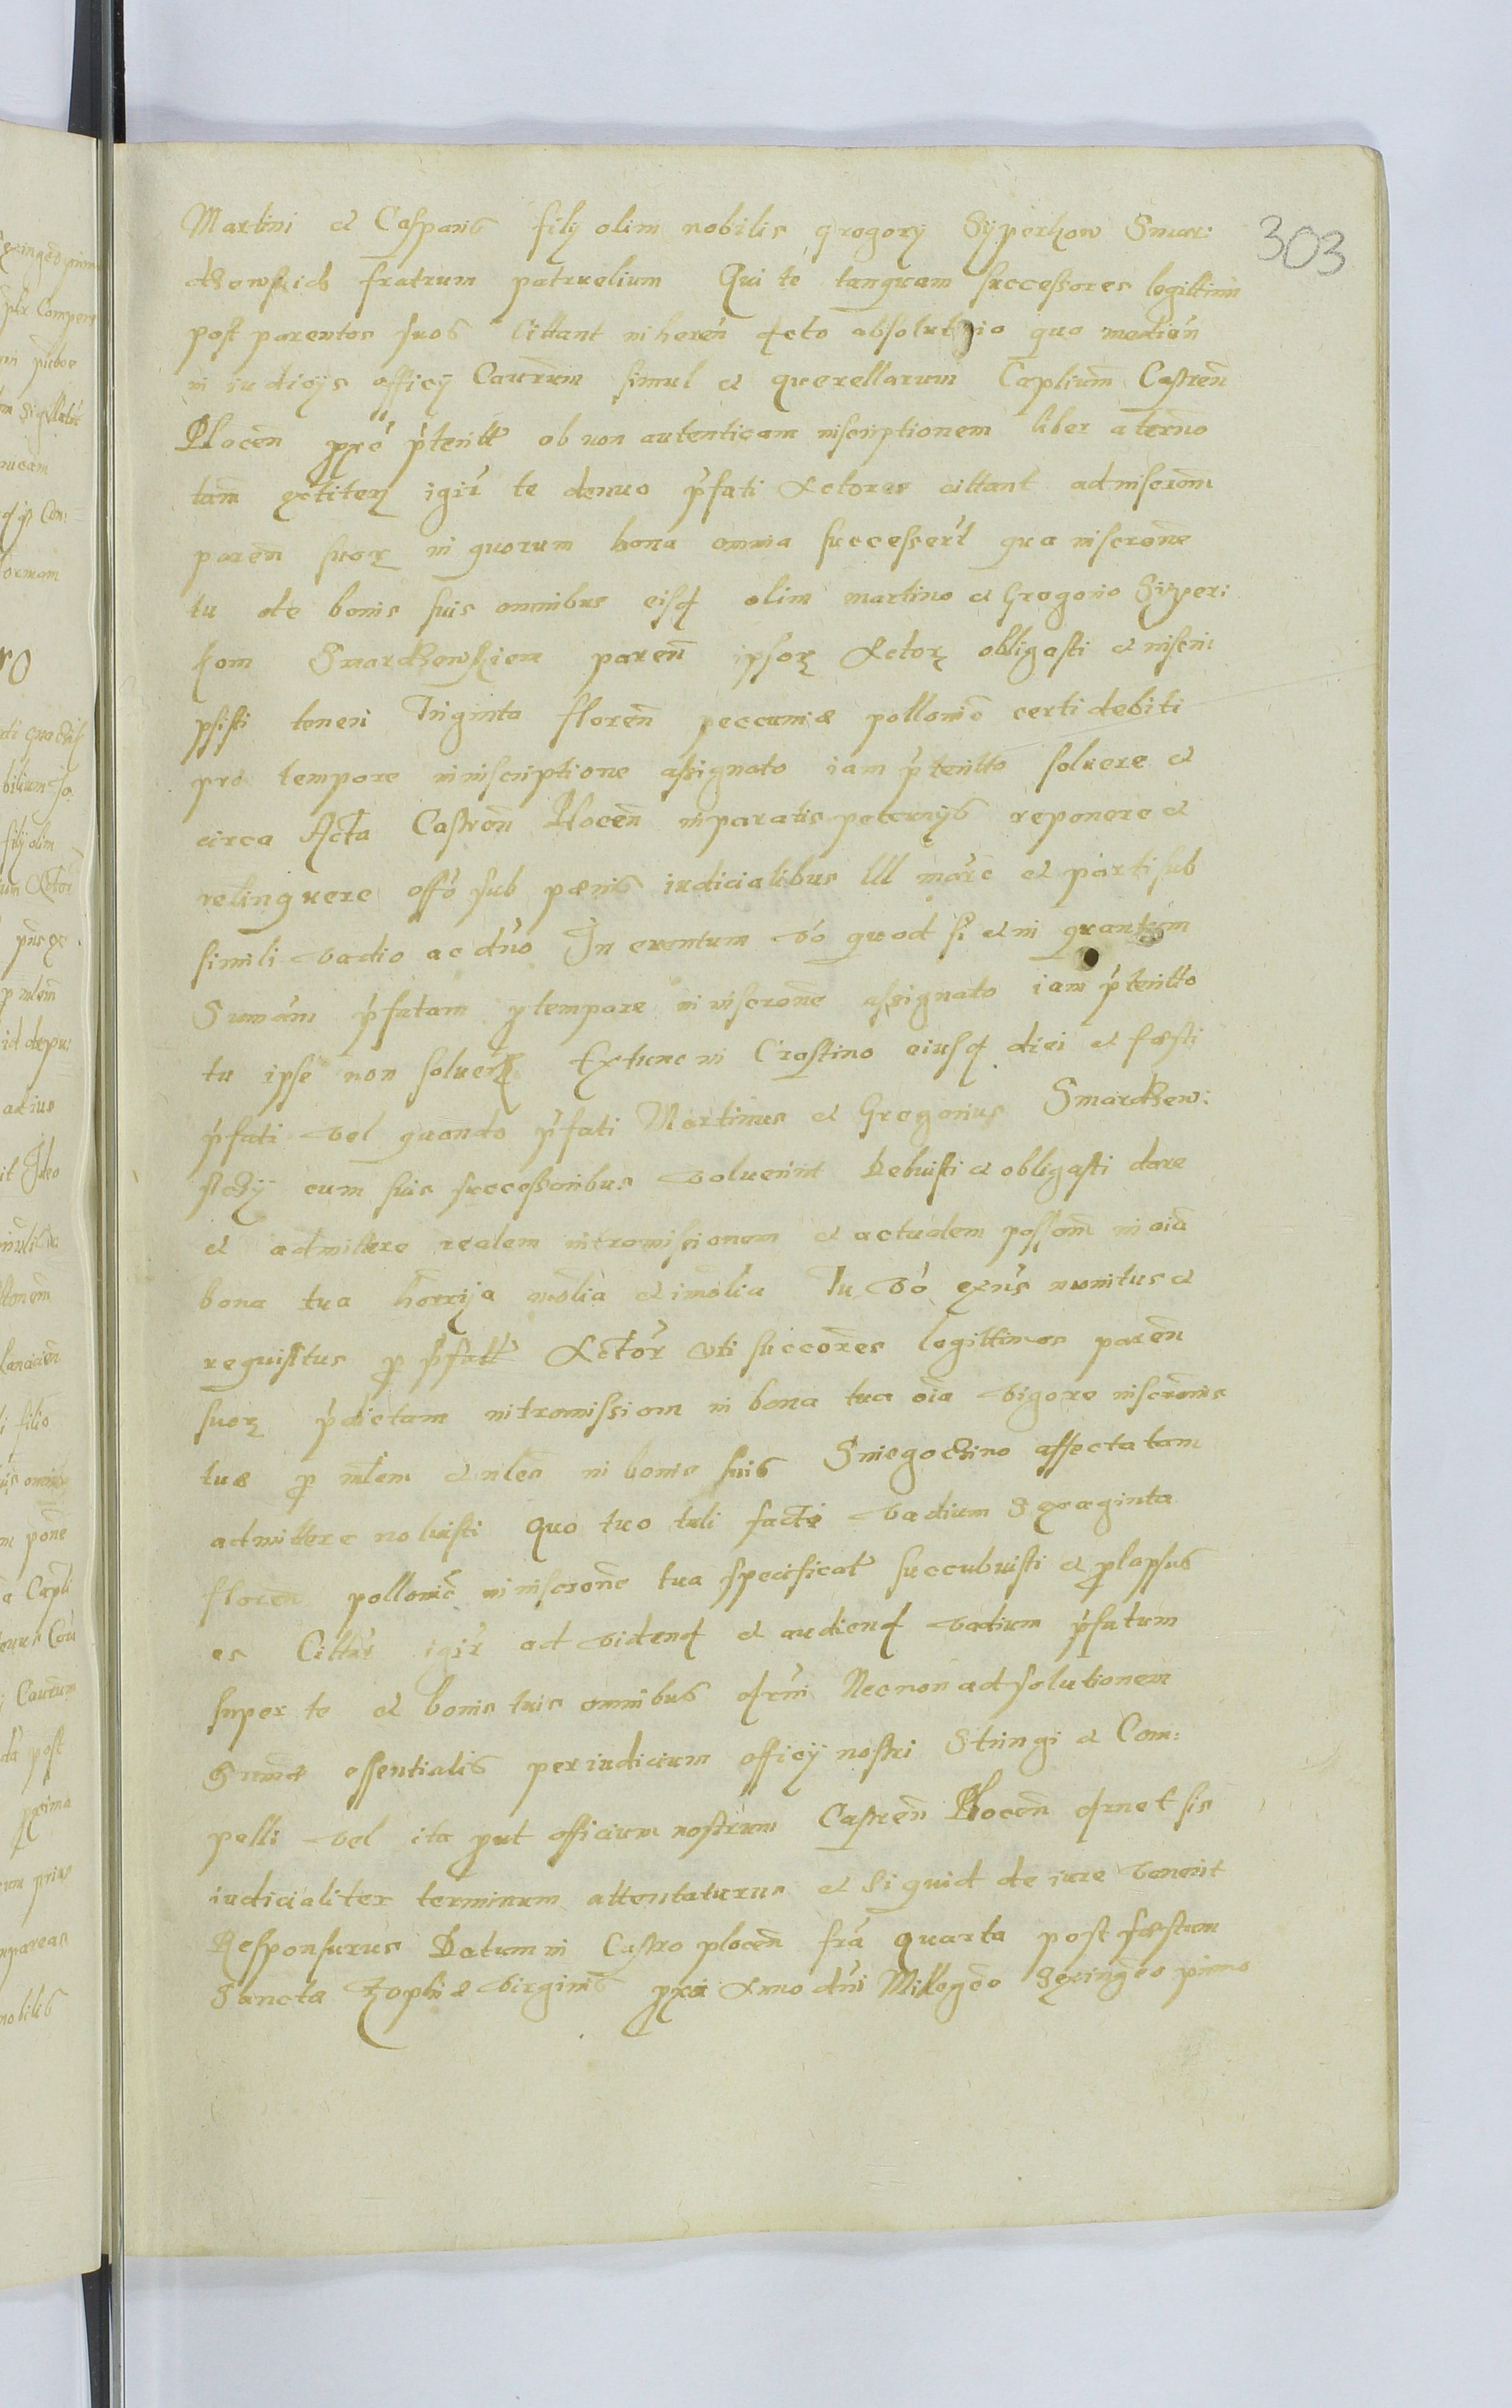 303
Martini et Casparis filij olim nobilis gregorij Sijperkow Smar:
dzewskich fratrum patruelium Qui te tanquam successores legittimi
post parentes suos Cittant inheren dcto absolut io quo median
in iudicijs officij Caurum simul et querellarum Caplium Castren
Plocen pxe pteritt ob non autenticam inscriptionem liber a termo
tam extiter igir te denuo pfati Actores cittant ad inscrom
paren suor in quorum bona omnia successert qua inscrone
tu de bonis suis omnibus eisd olim martino et Gregorio Sijper:
kom Smardzewskiem paren ipsor Actor obligasti et inscri:
psisti teneri Triginta floren peccuniæ pollonic certi debiti
pro tempore in inscriptione assignato iam pteritto soluere et
circa Acta Castren Plocen in paratis pecunijs reponere et
relinquere offo sub pænis iudicialibus III marc et parti sub
simili vadio ac duo In euentum vo quod si et in quantum
Sumam pfatam p tempore in inscrone assignato iam pteritto
tu ipse non soluer Extunc in Crastino eiusd diei et fæsti
pfati vel quando pfati Martinus et Gregorius Smardzew:
sczij cum suis successoribus voluerint Debuisti et obligasti dare
et admittere realem intromissionem et actualem possom in oia
bona tua horrija molia et imolia Tu vo exns monitus et
requisitus p pfatt Actor vti succores legittimos paren
suor pdictam intromissiom in bona tua oia vigore inscronis
tuæ p mlem et nles in bonis suis Sniegoczino affectatam
admittere noluisti Quo tuo tali facto vadium Sexaginta
floren pollonic in inscrone tua specificat succubuisti et plapsus
es Cittar igir ad vidend et audiend vadium pfatum
super te et bonis tuis omnibus drni Necnon ad solutionem
Sumæ essentialis per iudicium officij nostri Stringi et Com:
pelli vel ita put officium nostrum Castren Plocen drnet sis
iudicialiter terminum attentaturus et Si quid de iure venerit
Responsurus Datum in Castro plocen fra quarta post fæstum
Sancta Zophiæ virginis pxa Anno dni Millegeo Sexingeo primo